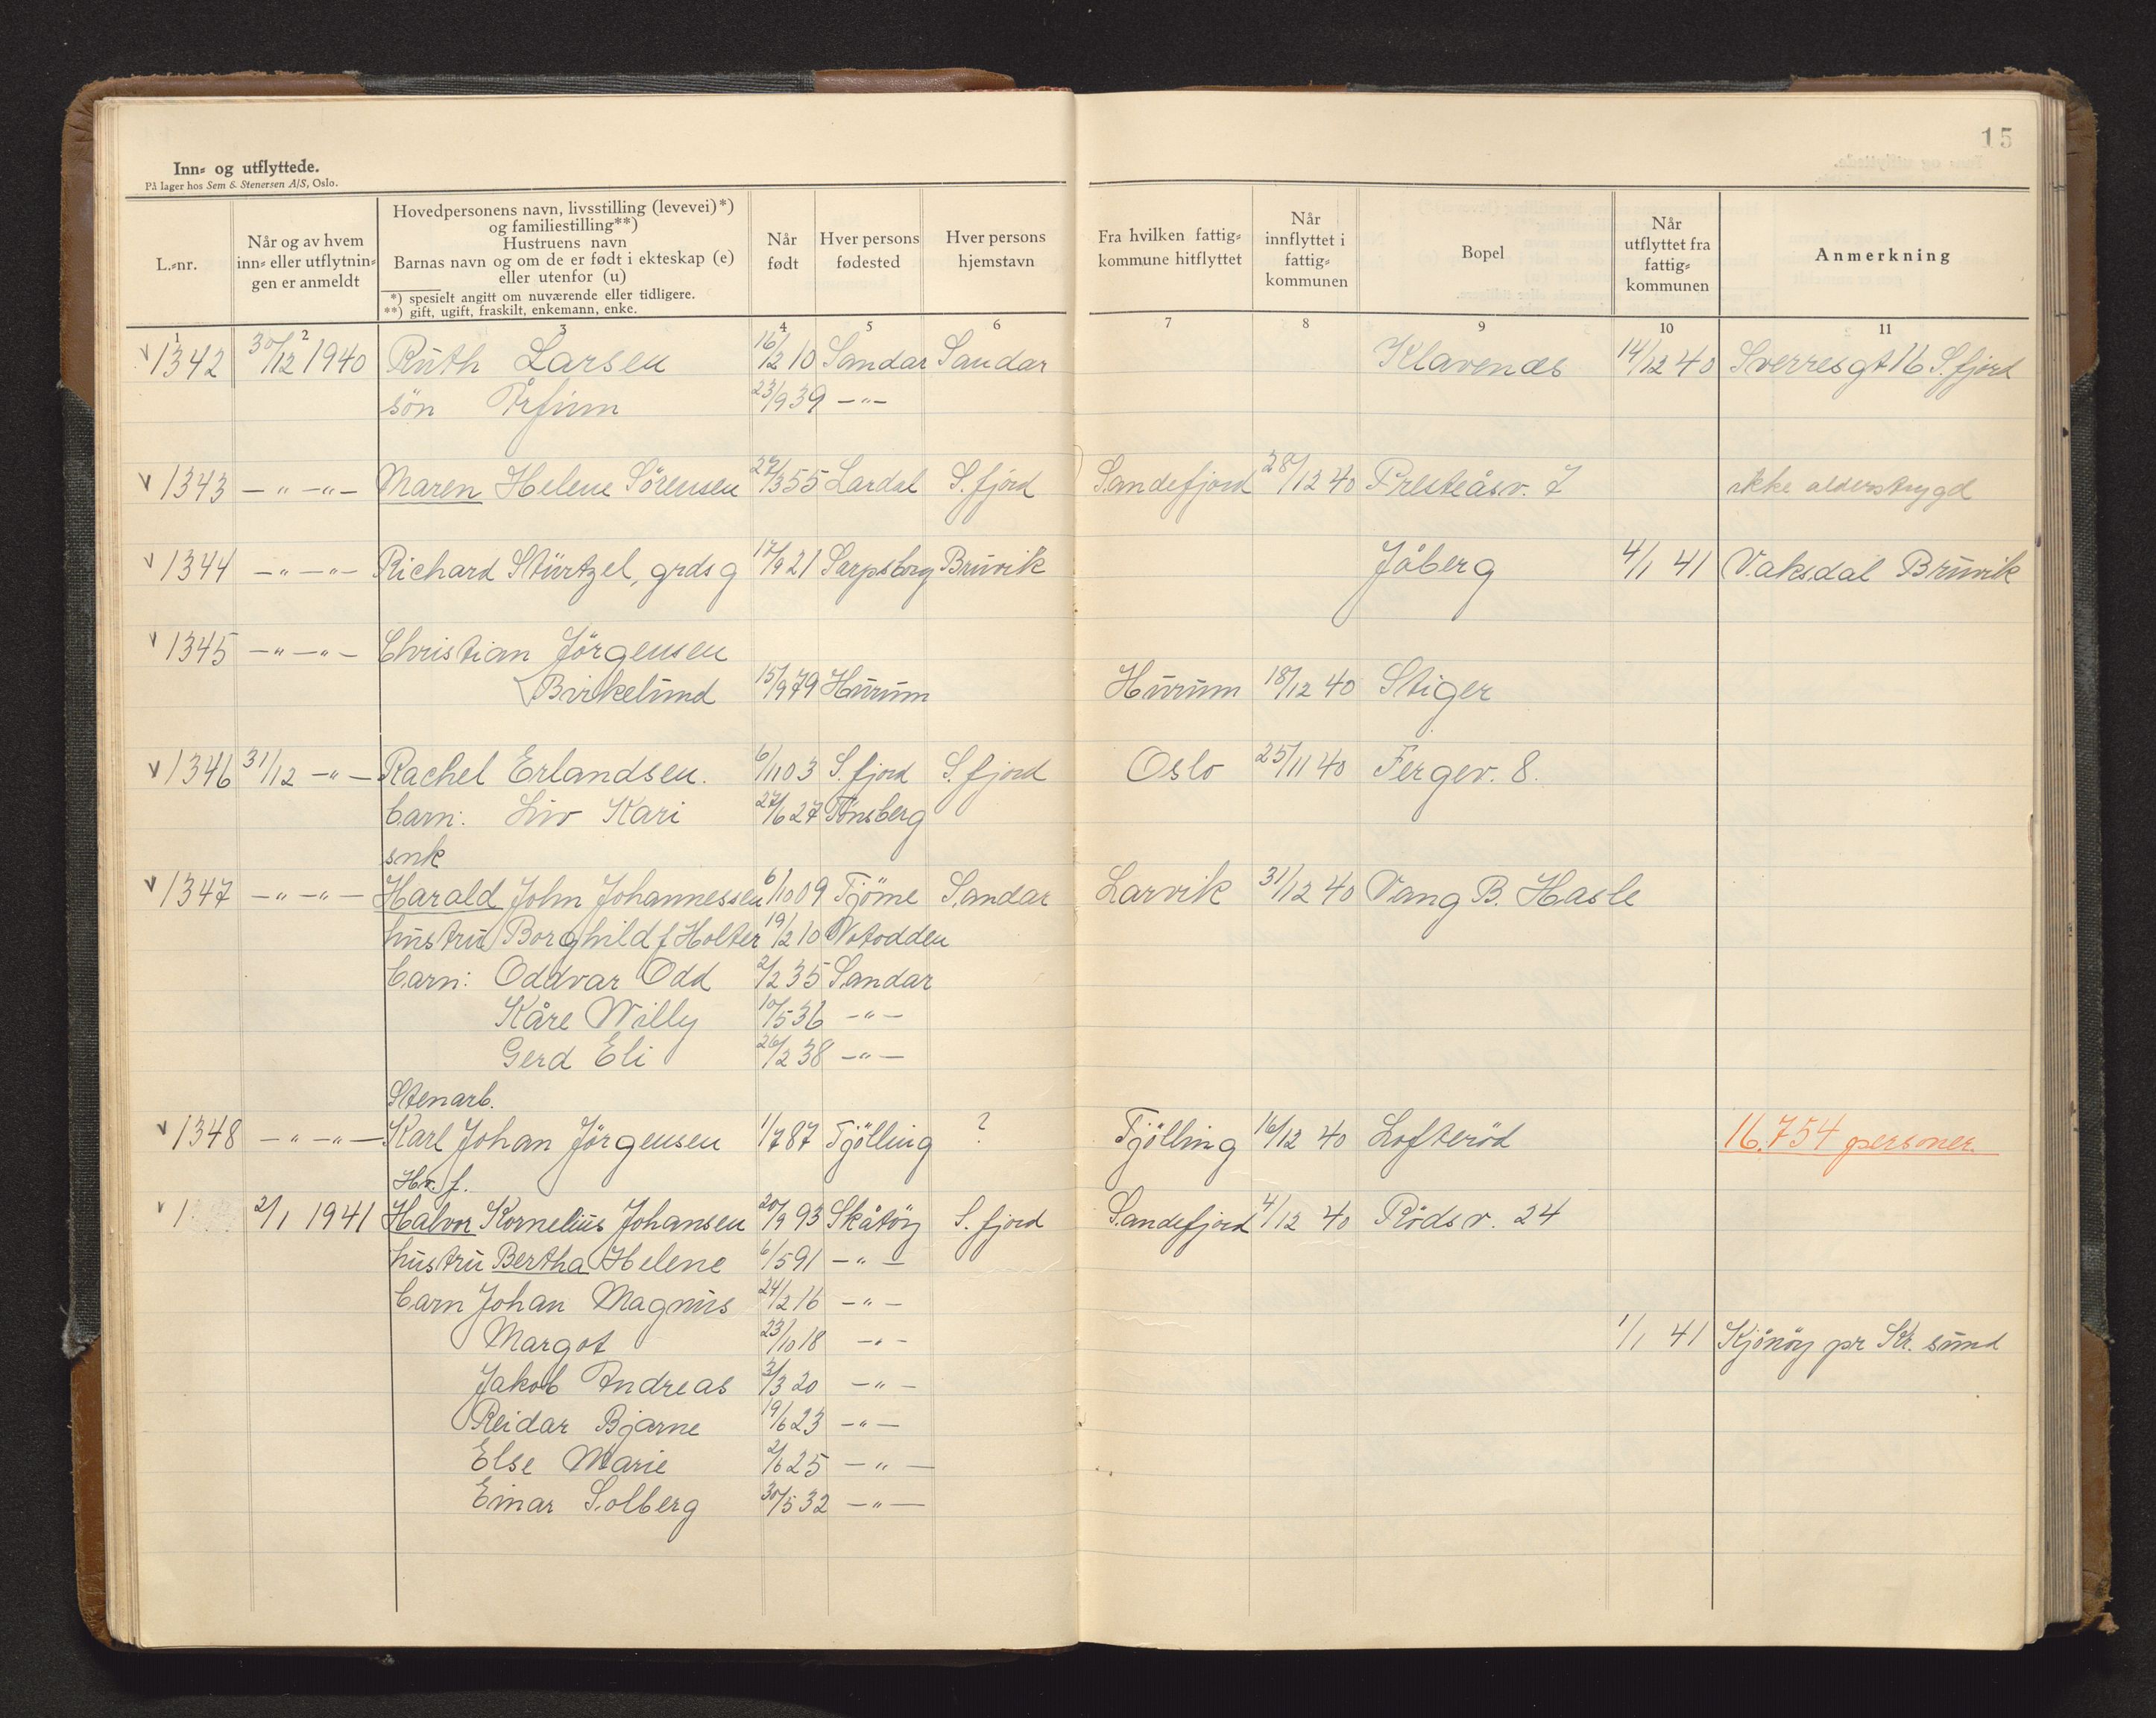 15
Inn= og utflyttede.
På lager hos Sem & Stenersen A/S, Oslo.
L.=nr. | Når og av hvem inn= eller utflytnin=gen er anmeldt | Hovedpersonens navn, livsstilling (levevei)*) og familiestilling**) Hustruens navn Barnas navn og om de er født i ekteskap (e) eller utenfor (u) *) spesielt angitt om nuværende eller tidligere. **) gift, ugift, fraskilt, enkemann, enke. | Når født | Hver persons fødested | Hver persons hjemstavn | Fra hvilken fattig=kommune hitflyttet | Når innflyttet i fattig=kommunen | Bopel | Når utflyttet fra fattig=kommunen | Anmerkning
1 2 3 4 5 6 7 8 9 10 11
v 1342 30/12 1940 Ruth Larsen 16/12 10 Sandar Sandar Klavenæs 14/12 40 Sverresgt 16 S.fjord
sön Arfinn 23/9 39 -"-
v 1343 -"-"- Maren Helene Sörensen 27/3 55 Lardal S.fjord Sandefjord 28/12 40 Presteåsv. 7 ikke alderstrygd
v 1344 -"-"- Richard Stürtzel, grdsg 17/9 21 Sarpsborg Bruvik Jåberg 4/1 41 Vaksdal Bruvik
v 1345 -"-"- Christian Jörgensen
Birkelund 15/9 79 Hurum Hurum 18/12 40 Stiger
v 1346 31/12 -"- Rachel Erlandsen. 6/11 03 S.fjord S.fjord Oslo 25/11 40 Fergev. 8.
barn: Liv Kari 27/6 27 Tönsberg
snk
v 1347 -"-"- Harald John Johannessen 6/10 09 Tjöme Sandar Larvik 31/12 40 Vang B. Hasle
hustru Borghild f Holter 19/2 10 Notodden
barn: Oddvar Odd 2/2 35 Sandar
Kåre Willy 10/5 36 -"-
Gerd Eli 26/2 38 -"-
Stenarb.
v 1348 -"-"- Karl Johan Jörgensen 1/7 87 Tjölling ? Tjölling 16/12 40 Lofteröd 16.754 personer.
Hv. f.
v 1 2/1 1941 Halvor Kornelius Johansen 20/9 93 Skåtöy S.fjord Sandefjord 4/12 40 Rödsv. 24
hustru Bertha Helene 6/5 91 -"-
barn Johan Magnus 24/2 16 -"-
Margot 23/10 18 -"- 1/1 41 Kjönöy pr Kr. sund
Jakob Andreas 3/3 20 -"-
Reidar Bjarne 19/6 23 -"-
Else Marie 2/6 25 -"-
Einar Solberg 30/5 32 -"-